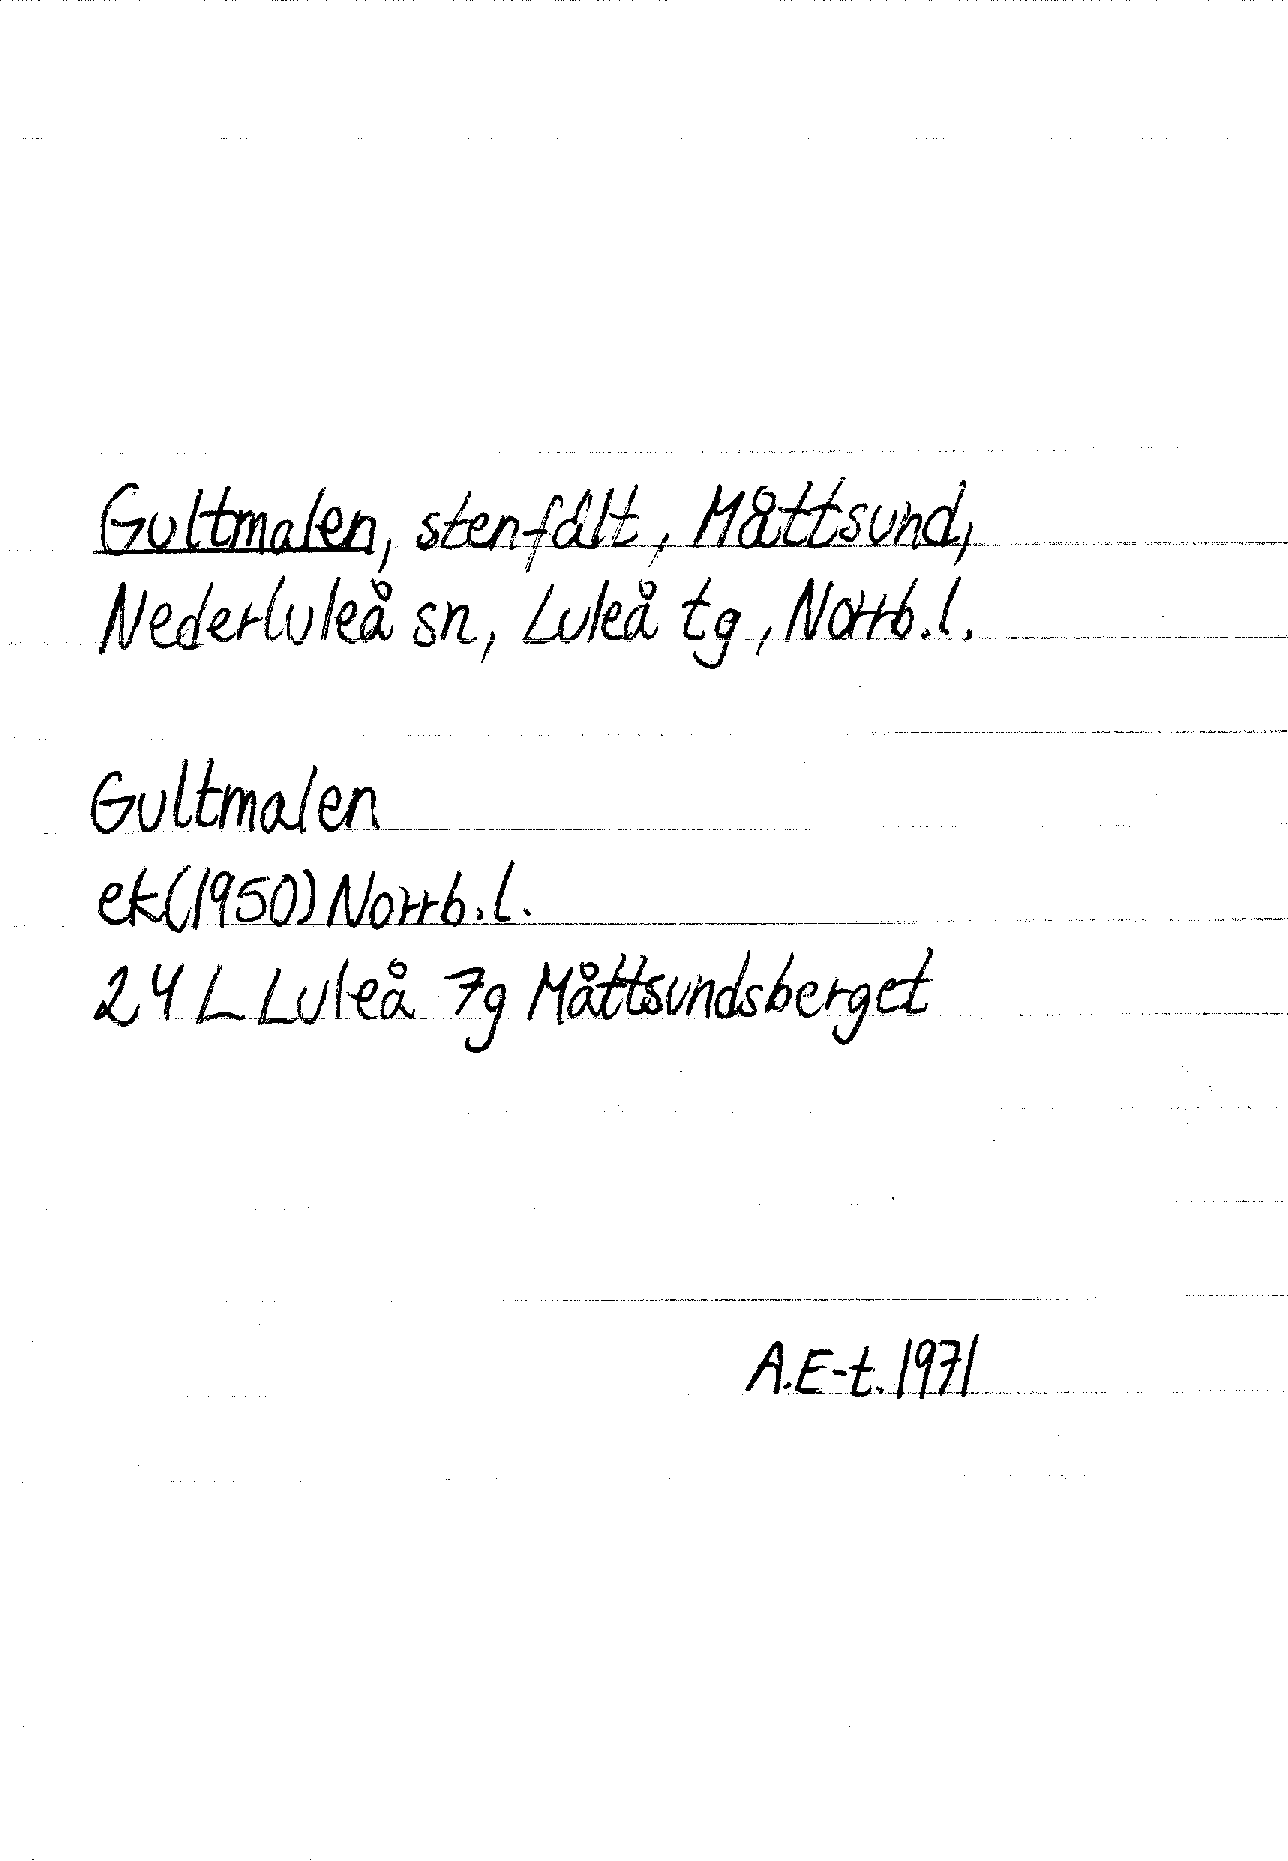 Gultmalen, stenfält, Måttsund,
Nederluleå sn, Luleå tg, Norrb.l.
Gultmalen
ek(1950) Norrb.l.
24 L Luleå 7g Måttsundsberget
A.E-t. 1971